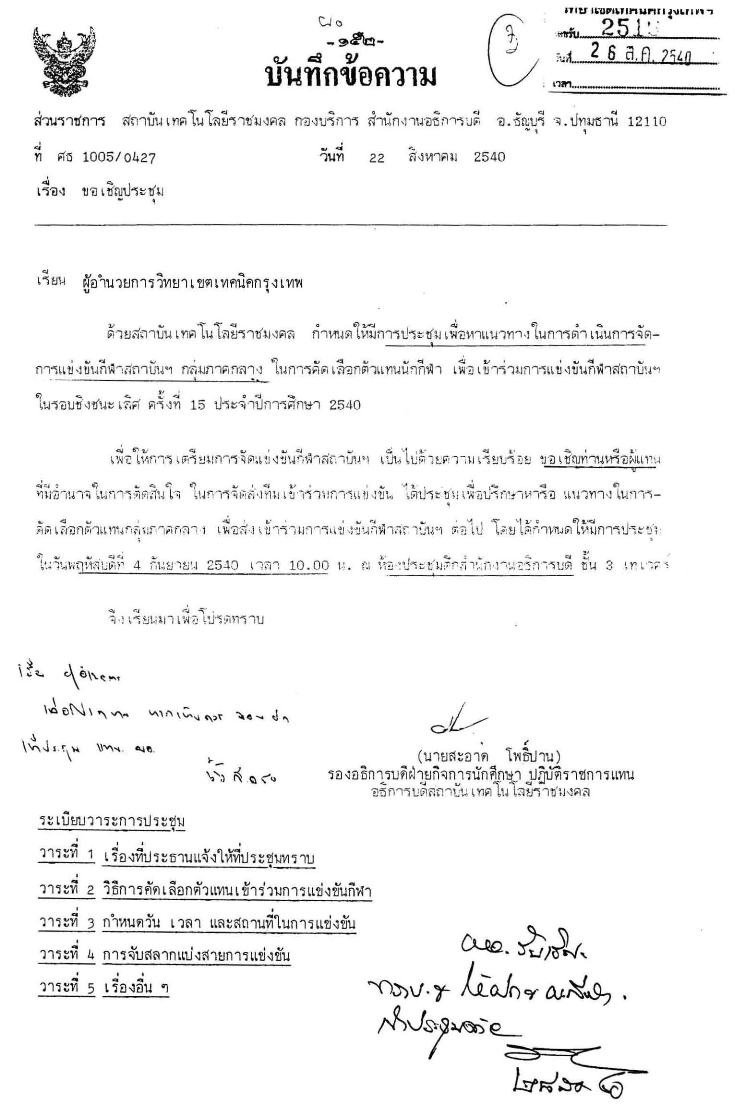 -๑๕๒-
บันทึกข้อความ
2 6 ส.ค. 2540
เวลา
ส่วนราชการ สถาบันเทคโนโลยีราชมงคล กองบริการ สำนักงานอธิการบดี อ.ธัญบุรี จ.ปทุมธานี 12110
ที่ ศธ 1005/0427 วันที่ 22 สิงหาคม 2540
เรื่อง ขอเชิญประชุม
เรียน ผู้อำนวยการวิทยาเขตเทคนิคกรุงเทพ
ด้วยสถาบันเทคโนโลยีราชมงคล กำหนดให้มีการประชุมเพื่อหาแนวทางในการดำเนินการจัด-
การแข่งขันกีฬาสถาบันฯ กลุ่มภาคกลาง ในการคัดเลือกตัวแทนนักกีฬา เพื่อเข้าร่วมการแข่งขันกีฬาสถาบันฯ
ในรอบชิงชนะเลิศ ครั้งที่ 15 ประจำปีการศึกษา 2540
เพื่อให้การเตรียมการจัดแข่งขันกีฬาสถาบันฯ เป็นไปด้วยความเรียบร้อย ขอเชิญท่านหรือผู้แทน
ที่มีอำนาจในการตัดสินใจ ในการจัดส่งทีมเข้าร่วมการแข่งขัน ได้ประชุมเพื่อปรึกษาหารือ แนวทางในการ-
คัดเลือกตัวแทนกลุ่มภาคกลาง เพื่อส่งเข้าร่วมการแข่งขันกีฬาสถาบันฯ ต่อไป โดยได้กำหนดให้มีการประชุม
ในวันพฤหัสบดีที่ 4 กันยายน 2540 เวลา 10.00 น. ณ ห้องประชุมตึกสำนักงานอธิการบดี ชั้น 3 เทเวศร์
จึงเรียนมาเพื่อโปรดทราบ
(นายสะอาด โพธิ์ปาน)
รองอธิการบดีฝ่ายกิจการนักศึกษา ปฏิบัติราชการแทน
อธิการบดีสถาบันเทคโนโลยีราชมงคล
ระเบียบวาระการประชุม
วาระที่ 1 เรื่องที่ประธานแจ้งให้ที่ประชุมทราบ
วาระที่ 2 วิธีการคัดเลือกตัวแทนเข้าร่วมการแข่งขันกีฬา
วาระที่ 3 กำหนดวัน เวลา และสถานที่ในการแข่งขัน
วาระที่ 4 การจับสลากแบ่งสายการแข่งขัน
วาระที่ 5 เรื่องอื่น ๆ